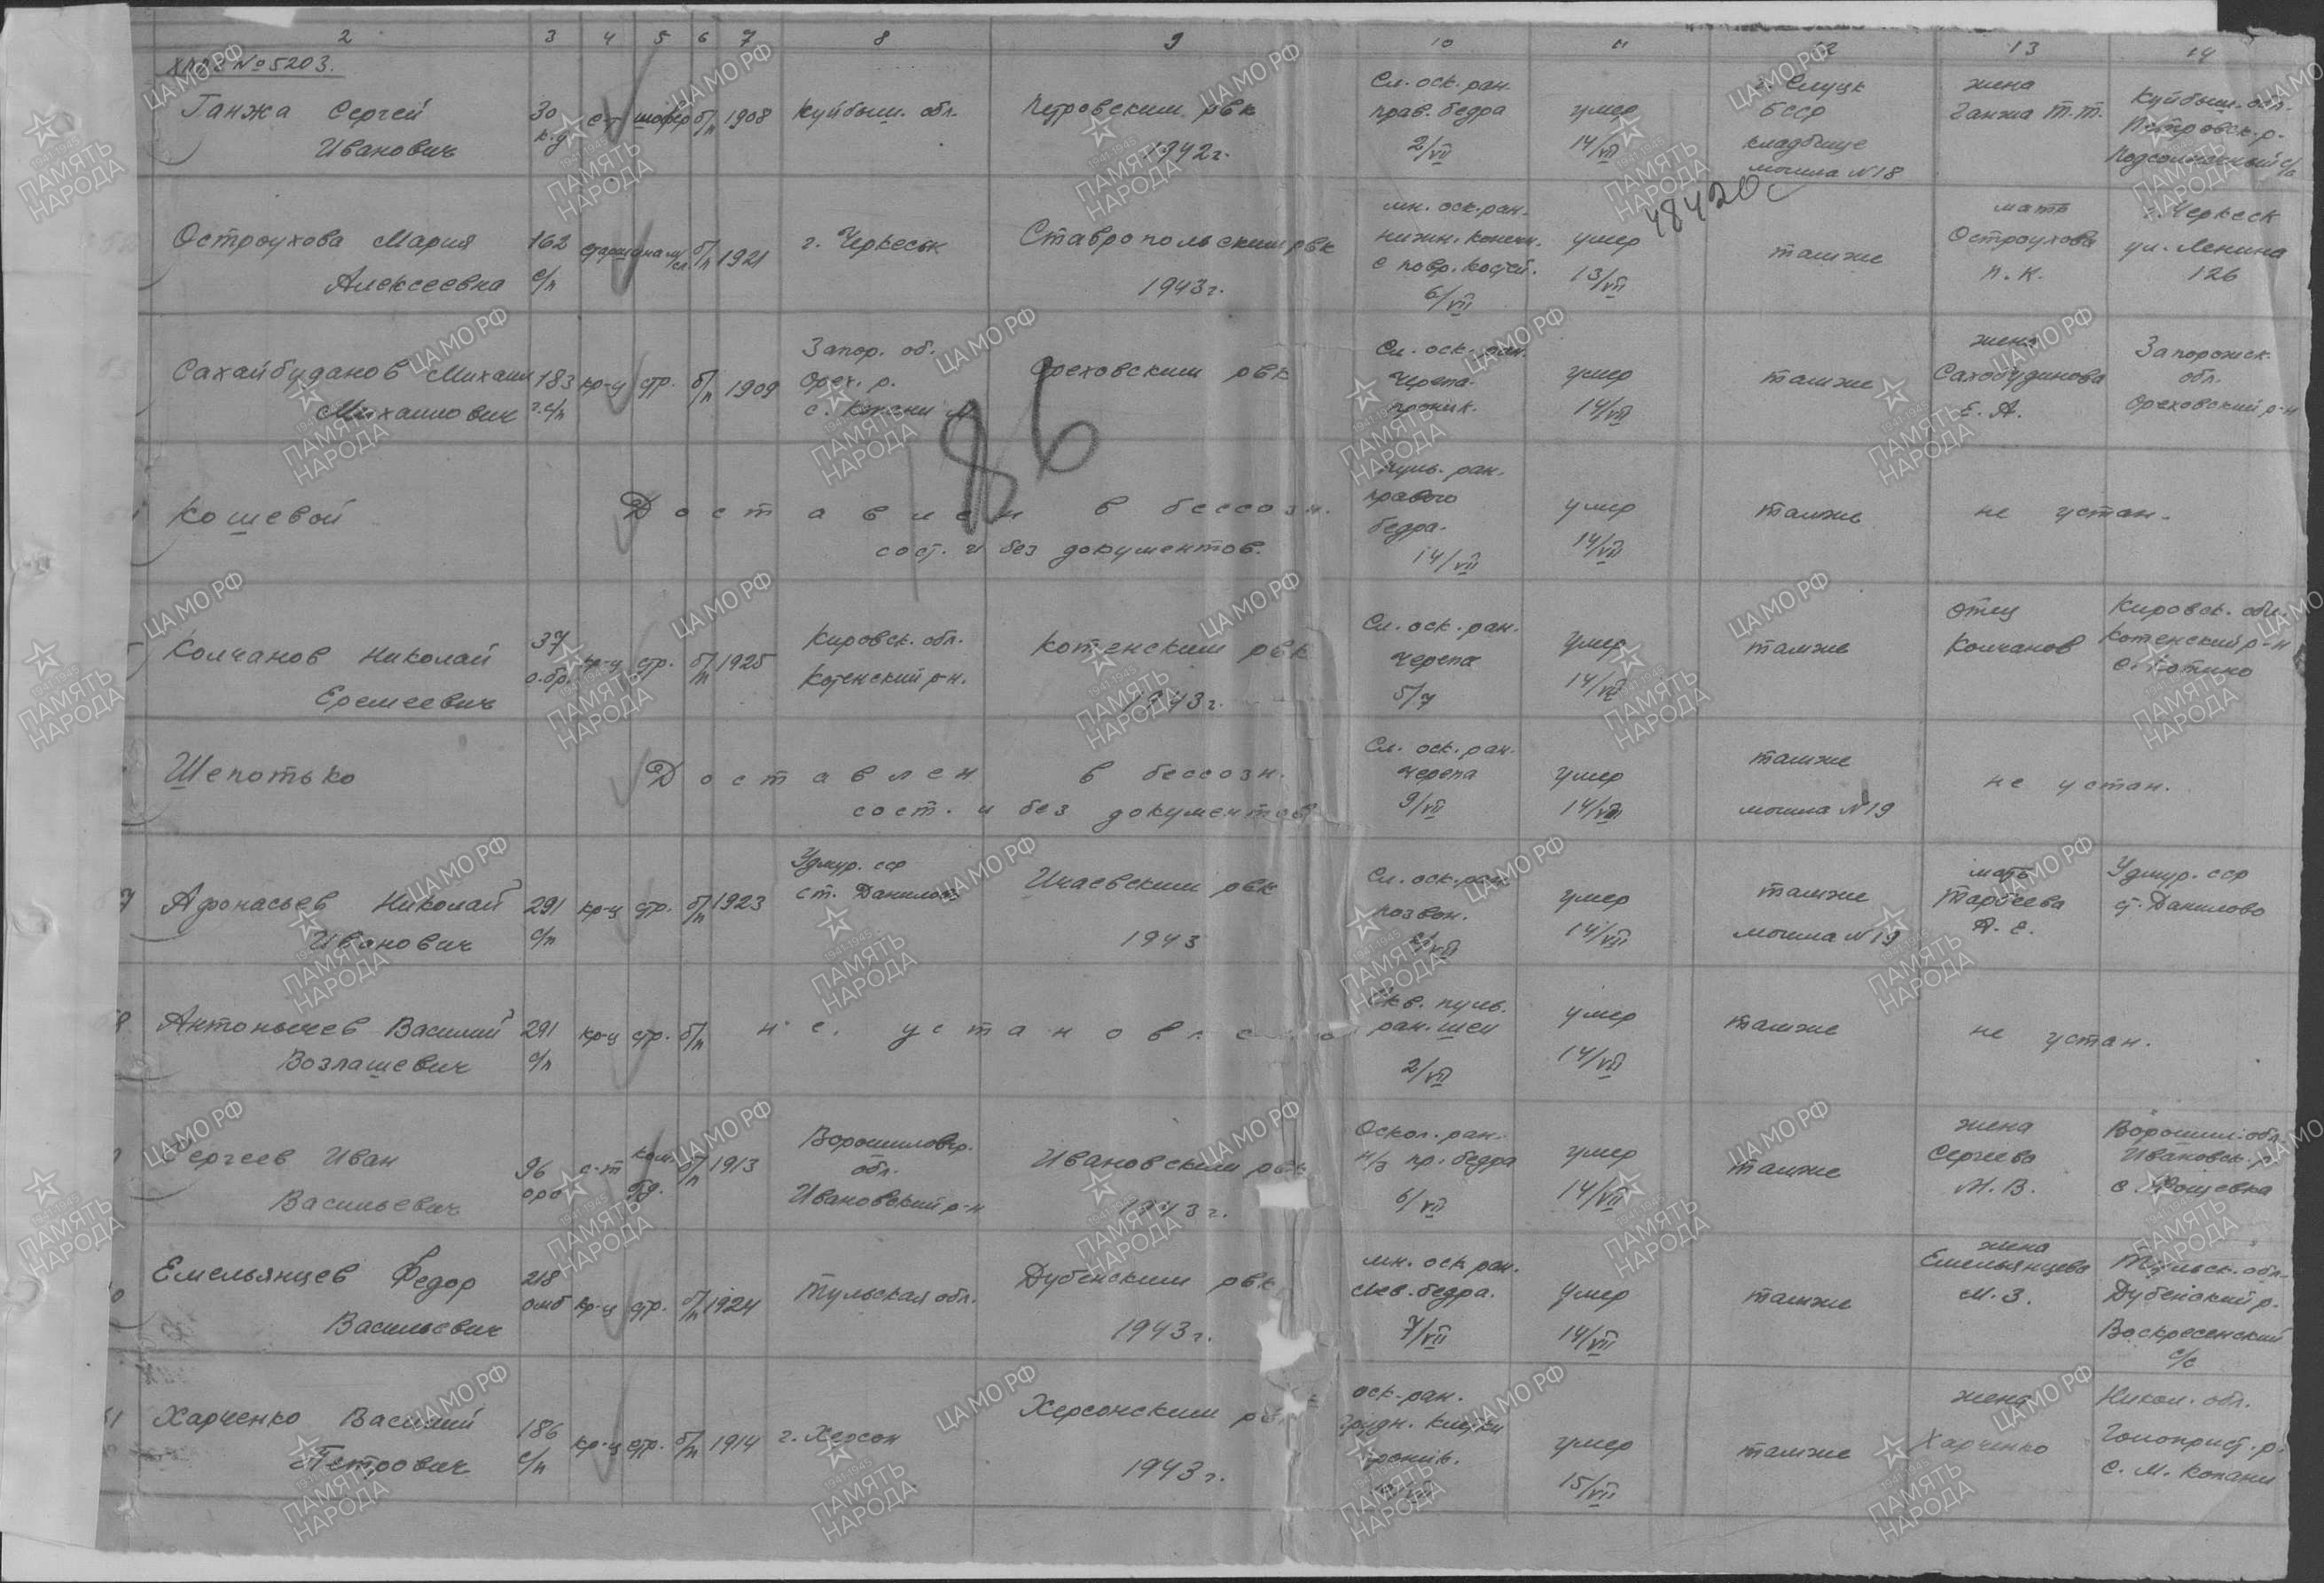 2 3 4 5 6 7 8 9 10 11 12 13 14
ХППГ №5203.
Ганжа Сергей Иванович 30 к.у с-т шофер б/п 1908 Куйбыш. обл. Петровским рвк 1942г. Сл. оск. ран. прав. бедра 2/VII умер 14/VII г. Слуцк БССР кладбище могила N18 жена Ганжа Т.Т. Куйбыш. обл. Петровск. р.
48420с
Остроухова Мария Алексеевна 162 с/п б/п 1921 г. Черкесск Ставропольским рвк 1943г. мн. оск. ран. нижн. конечн. с повр. костей. 6/VII умер 13/VII тамже мать Остроухова П.К. г. Черкесск ул. Ленина 126
Сахайбуданов Михаил Михайлович 183 г.с/п кр-ц стр. б/п 1909 Запор. об. Орех. р. Ореховским рвк Сл. оск. ран. черепа. проник. умер 14/VII тамже жена Е.А. Запорожск. обл. Ореховский р-н
86
Кошевой Доставлен в бессозн. сост. и без документов. пуль. ран. правого бедра. 14/VII умер 14/VII тамже не устан.
Колчанов Николай Еремеевич 37 о.бр кр-ц стр. б/п 1925 Кировск. обл. Котенский р-н. Котенским рвк 1943г. Сл. оск. ран. черепа 5/7 умер 14/VII тамже отец Колчанов Кировск. обл. Котенский р-н с. Котино
Шепотько Доставлен в бессозн. сост. и без документов Сл. оск. ран. черепа 9/VII умер 14/VII тамже могила N19 не устан.
Афонасьев Николай Иванович 291 с/п кр-ц стр. б/п 1923 Удмур. сср ст. Данилово Ичаевским рвк 1943 Сл. оск. ран. позвон. умер 14/VII тамже могила N19 мать Удмур. сср ст. Данилово
Антонычев Василий Возлашевич 291 с/п кр-ц стр. б/п не установлено Скв. пуль. ран. шеи 2/VII умер 14/VII тамже не устан.
Сергеев Иван Васильевич 96 орб с-т ком. б/п 1913 Ворошиловгр. обл. Ивановский р-н Ивановским рвк 1943г. Оскол. ран. н/з пр. бедра 6/VII умер 14/VII тамже жена Сергеева М.В. Ворошил. обл. Ивановск. р.
Емельянцев Федор Васильевич 218 омб кр-ц стр. б/п 1924 Тульская обл. Дубенским рвк 1943г. мн. оск. ран. лев. бедра. 7/VII умер 14/VII тамже жена Емельянцева М.З. Тульск. обл. Дубенский р. Воскресенский с/с
Харченко Василий Петрович 186 с/п кр-ц стр. б/п 1914 г. Херсон Херсонским рвк 1943г. оск. ран. грудн. клетки проник. умер 15/VII тамже жена Харченко Никол. обл. Голоприст. р. с. М. Копани
ПАМЯТЬ НАРОДА
1941-1945
ЦАМО РФ